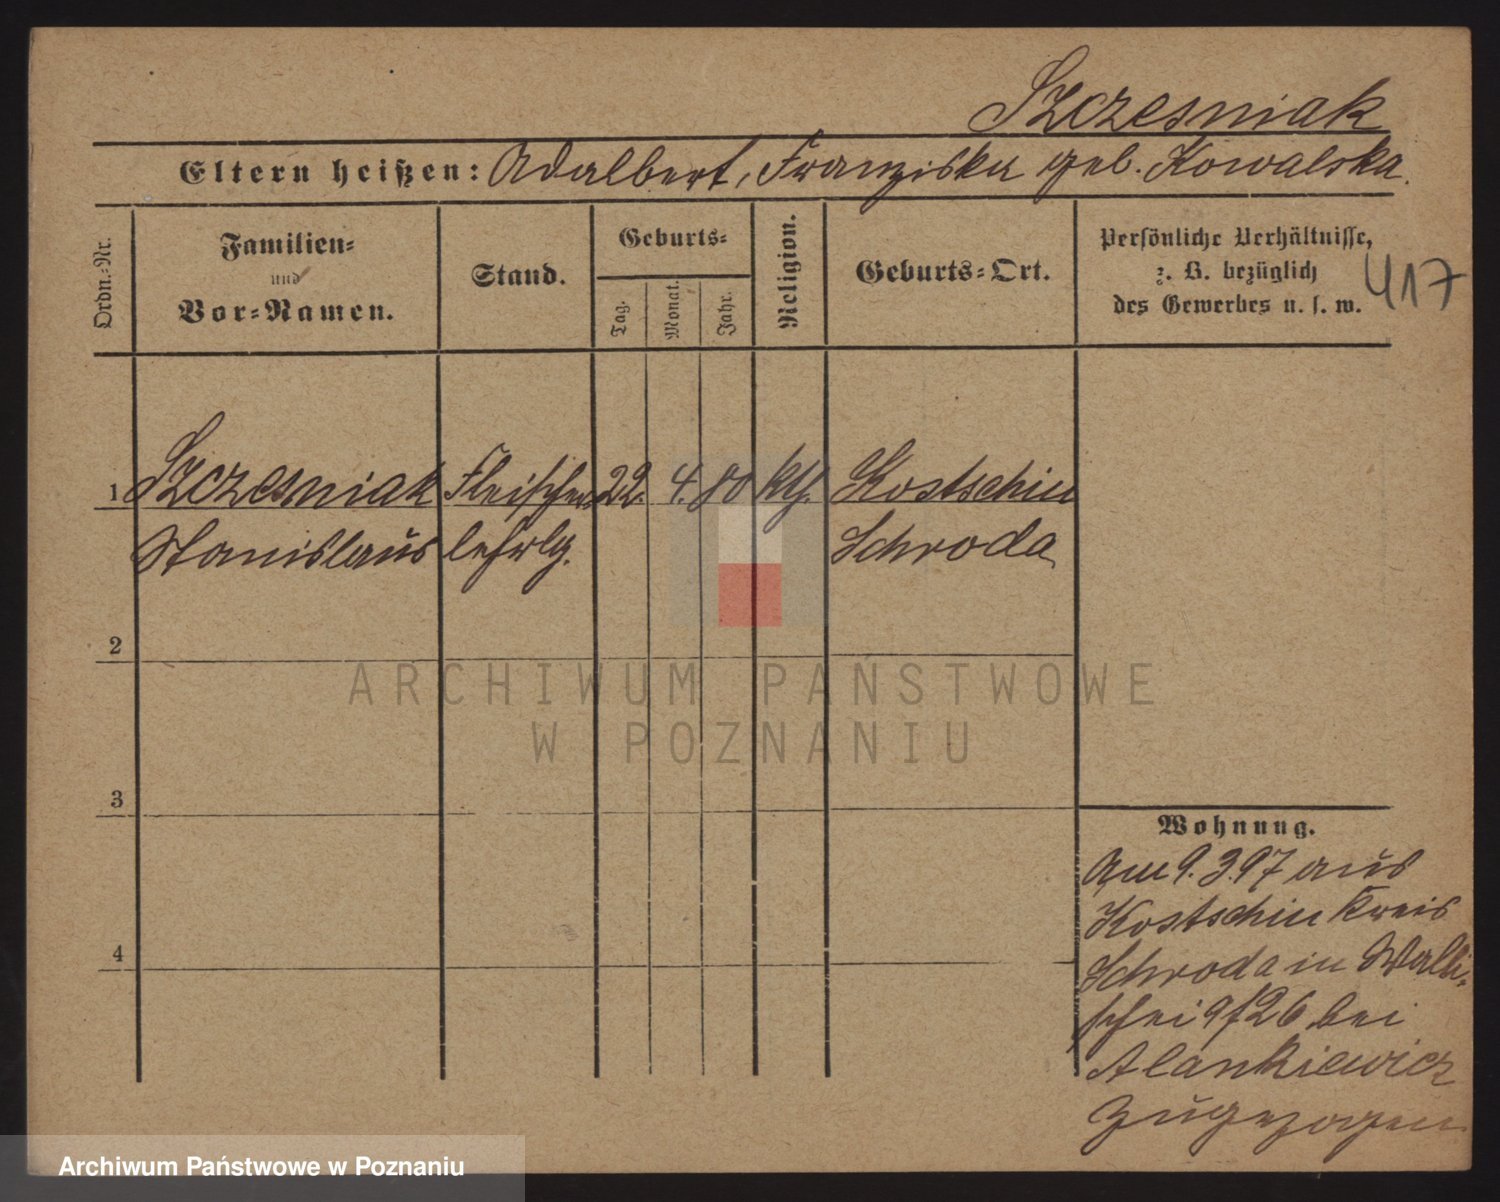 Szczesniak
Eltern heißen: Adalbert, Franziska geb. Kowalska.
Ordn.-Nr.
Familien-
und
Vor-Namen.
Stand.
Geburts-
Tag.
Monat.
Jahr.
Religion.
Geburts-Ort.
Persönliche Verhältnisse,
z. B. bezüglich
des Gewerbes u. s. w.
417
1 Szczesniak Fleischer- 22. 4. 80 kth. Kostschin
Stanislaus lehrlg. Schroda
2
3
4
Wohnung.
Am 9.3.97 aus
Kostschin Kreis
Schroda in Walli-
schei 9/26 bei
Alankiewicz
zugezogen
ARCHIWUM PAŃSTWOWE
W POZNANIU
Archiwum Państwowe w Poznaniu